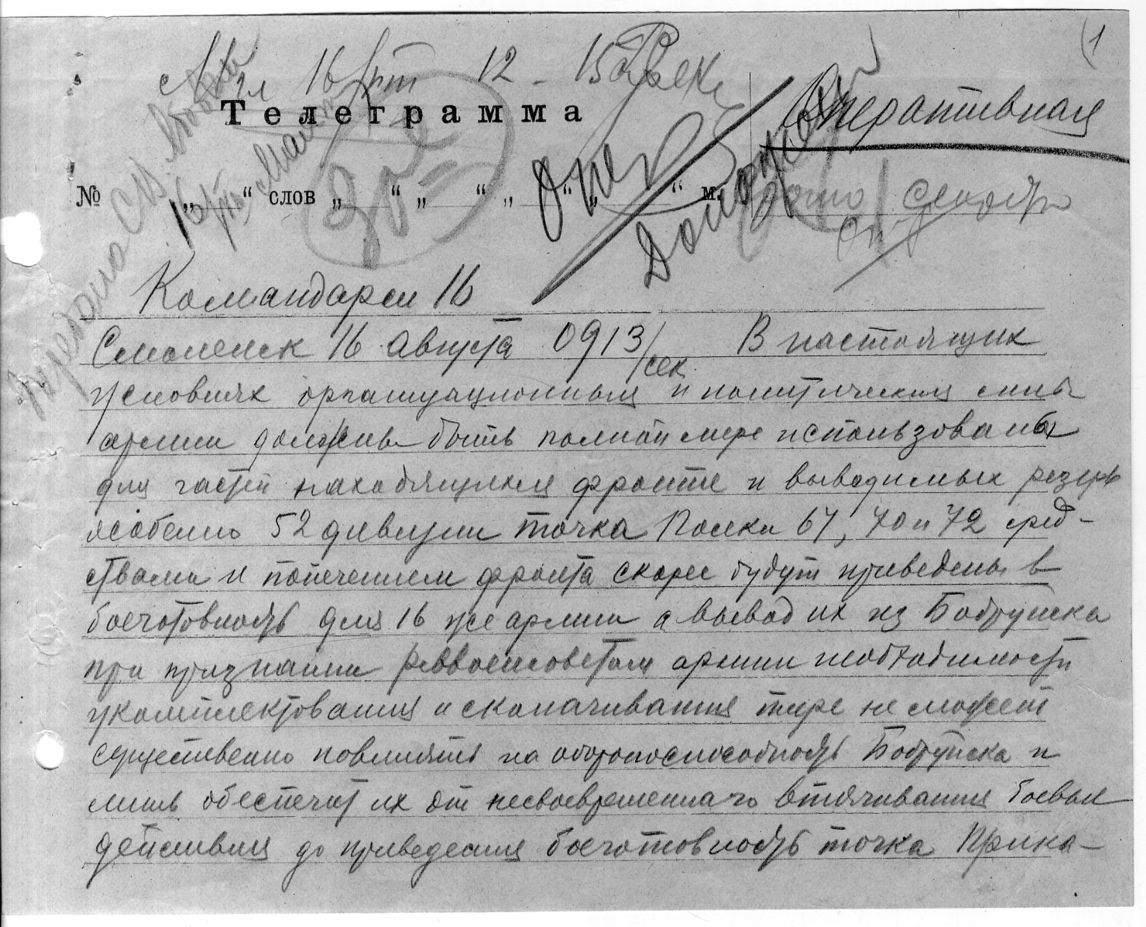 1
16 12 - 15
Телеграмма
Оперативная
№ „ “ слов „ “ „ “ „ “ „ “ м.
Опер
Доложено
Командарм 16
Смоленск 16 августа 0913/сек В настоящих
условиях организационныя и политическия силы
армии должны быть полной мере использованы
для частей находящихся фронте и выводимых резерв
особенно 52 дивизии точка Полки 67, 70 и 72 сред-
ствами и попечением фронта скорее будут приведены в
боеготовность для 16 же армии а вывод их из Бобруйска
при признании реввоенсоветом армии необходимости
укомплектования и сколачивания тире не может
существенно повлиять на обороноспособность Бобруйска и
лишь обеспечит их от несвоевременнаго втягивания боевыя
действия до приведения боеготовность точка Прика-